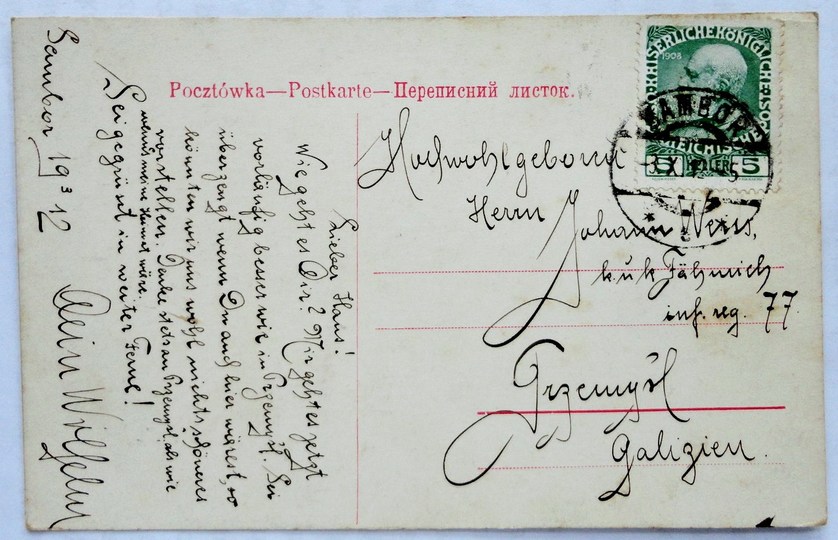 Pocztówka—Postkarte—Переписний листок.
Sambor, 19 3/X 12
Lieber Hans!
Wie geht es Dir? Mir geht es jetzt
vorläufig besser wie in Przemyśl. Sei
überzeugt wenn Du auch hier wärest, so
könnten wir uns wohl nichts schöneres
vorstellen. Denke stets an Przemyśl, als wie
wenn's meine Heimat wäre.
Sei gegrüsst in weiter Ferne!
Dein Wilhelm
Hochwohlgeboren
Herrn
Johann Weiss,
k.u.k. Fähnrich
inf. reg. 77
Przemyśl
Galizien.
KAISERLICHEKÖNIGLICHEÖSTERREICHISCHE
1908
5
SAMBOR